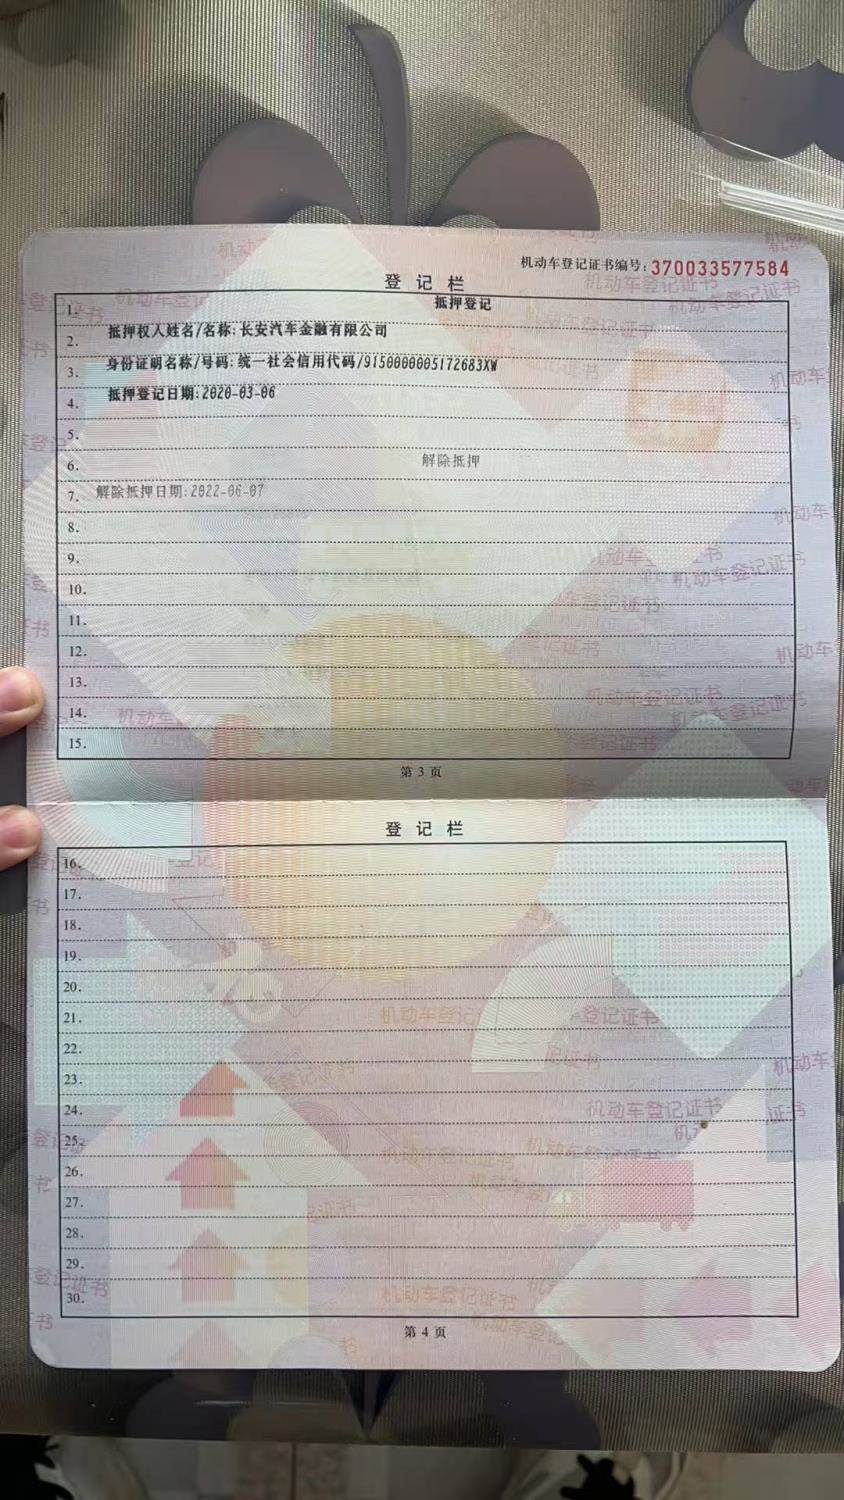 机动车登记证书编号:370033577584
登 记 栏
1. 抵押登记
2. 抵押权人姓名/名称:长安汽车金融有限公司
3. 身份证明名称/号码:统一社会信用代码/9150000005172683XW
4. 抵押登记日期:2020-03-06
5.
6. 解除抵押
7. 解除抵押日期:2022-06-07
8.
9.
10.
11.
12.
13.
14.
15.
第 3 页
登 记 栏
16.
17.
18.
19.
20.
21.
22.
23.
24.
25.
26.
27.
28.
29.
30.
第 4 页